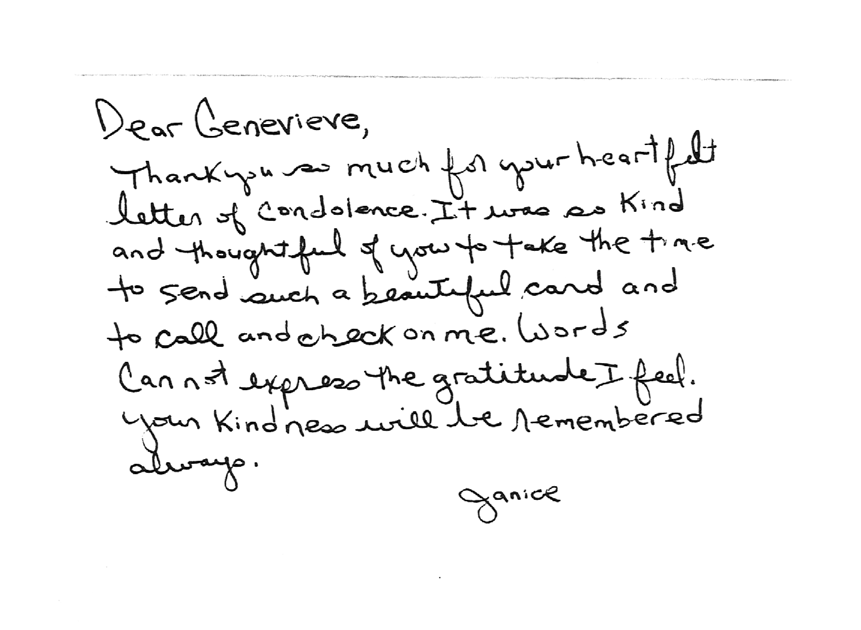 Dear Genevieve,
Thank you so much for your heartfelt
letter of condolence. It was so kind
and thoughtful of you to take the time
to send such a beautiful card and
to call and check on me. Words
cannot express the gratitude I feel.
Your kindness will be remembered
always.
Janice